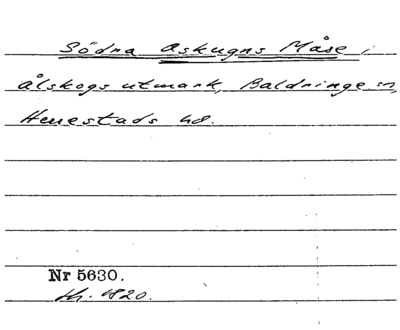 Södra Askugns Måse i
Ålskogs utmark, Baldringe sn,
Herrestads hd.
Nr 5630.
th. 1820.